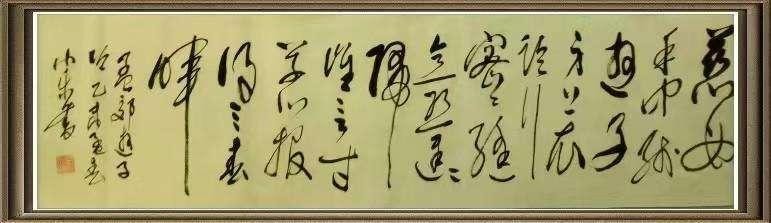 慈母
手中线
遊子
身上衣
临行
密密缝
意恐迟迟
归
谁言寸
草心报
得三春
晖
孟郊遊子
吟乙未春
书